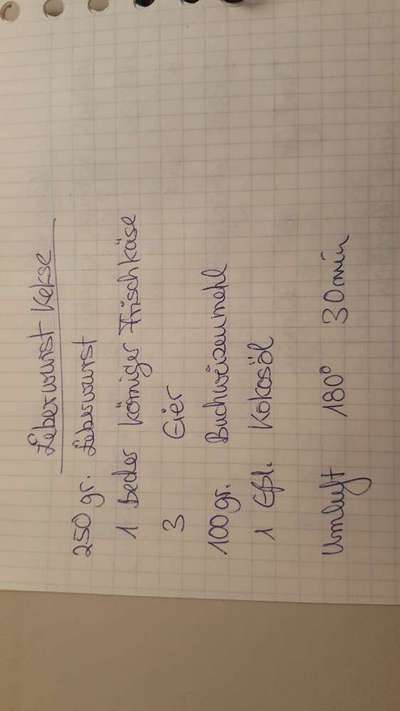 Leberwurst Kekse
250 gr. Leberwurst
1 Becher körniger Frischkäse
3 Eier
100 gr. Buchweizenmehl
1 Eßl. Kokosöl
Umluft 180° 30 min